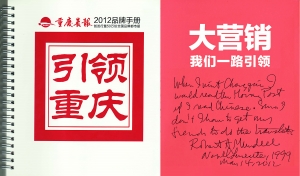 重庆晨报 2012品牌手册
引领
重庆
大营销
我们一路引领
When I visit Chongqing I
would read the Morning Post
if I read Chinese. Since I
don't I have to get my
friends to do the translation
Robert A Mundell
Nobel Laureate, 1999
Mar 14, 2012